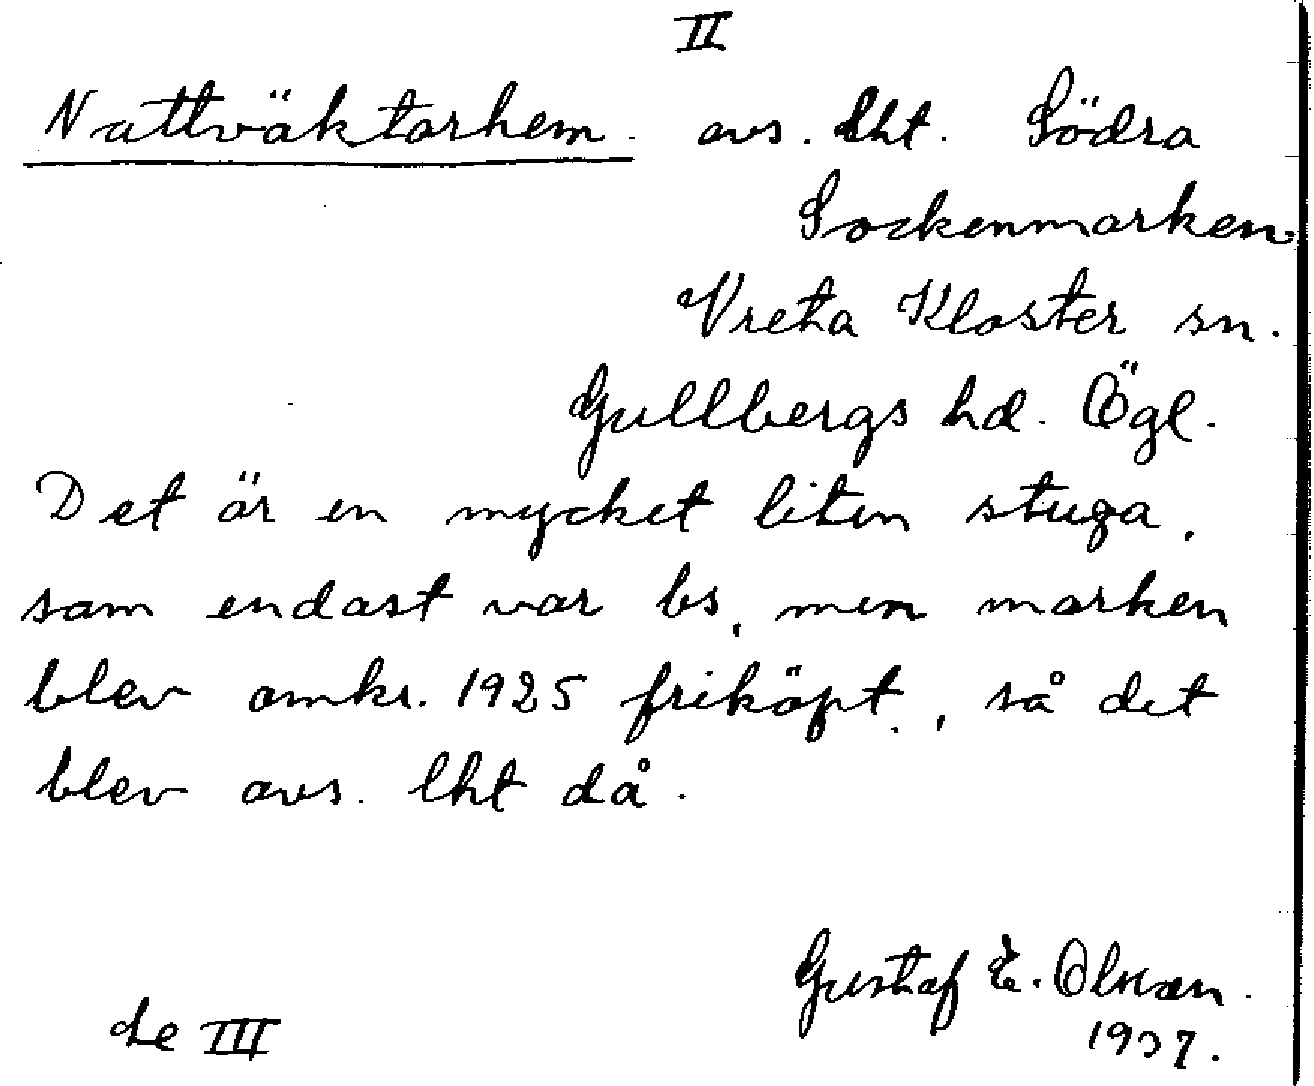 II
Nattväktarhem. avs. lht. Södra
Sockenmarken
Vreta Kloster sn.
Gullbergs hd. Ögl.
Det är en mycket liten stuga,
som endast var bs, men marken
blev omkr. 1925 friköpt, så det
blev avs. lht då.
Gustaf E. Olsson.
1937.
de III